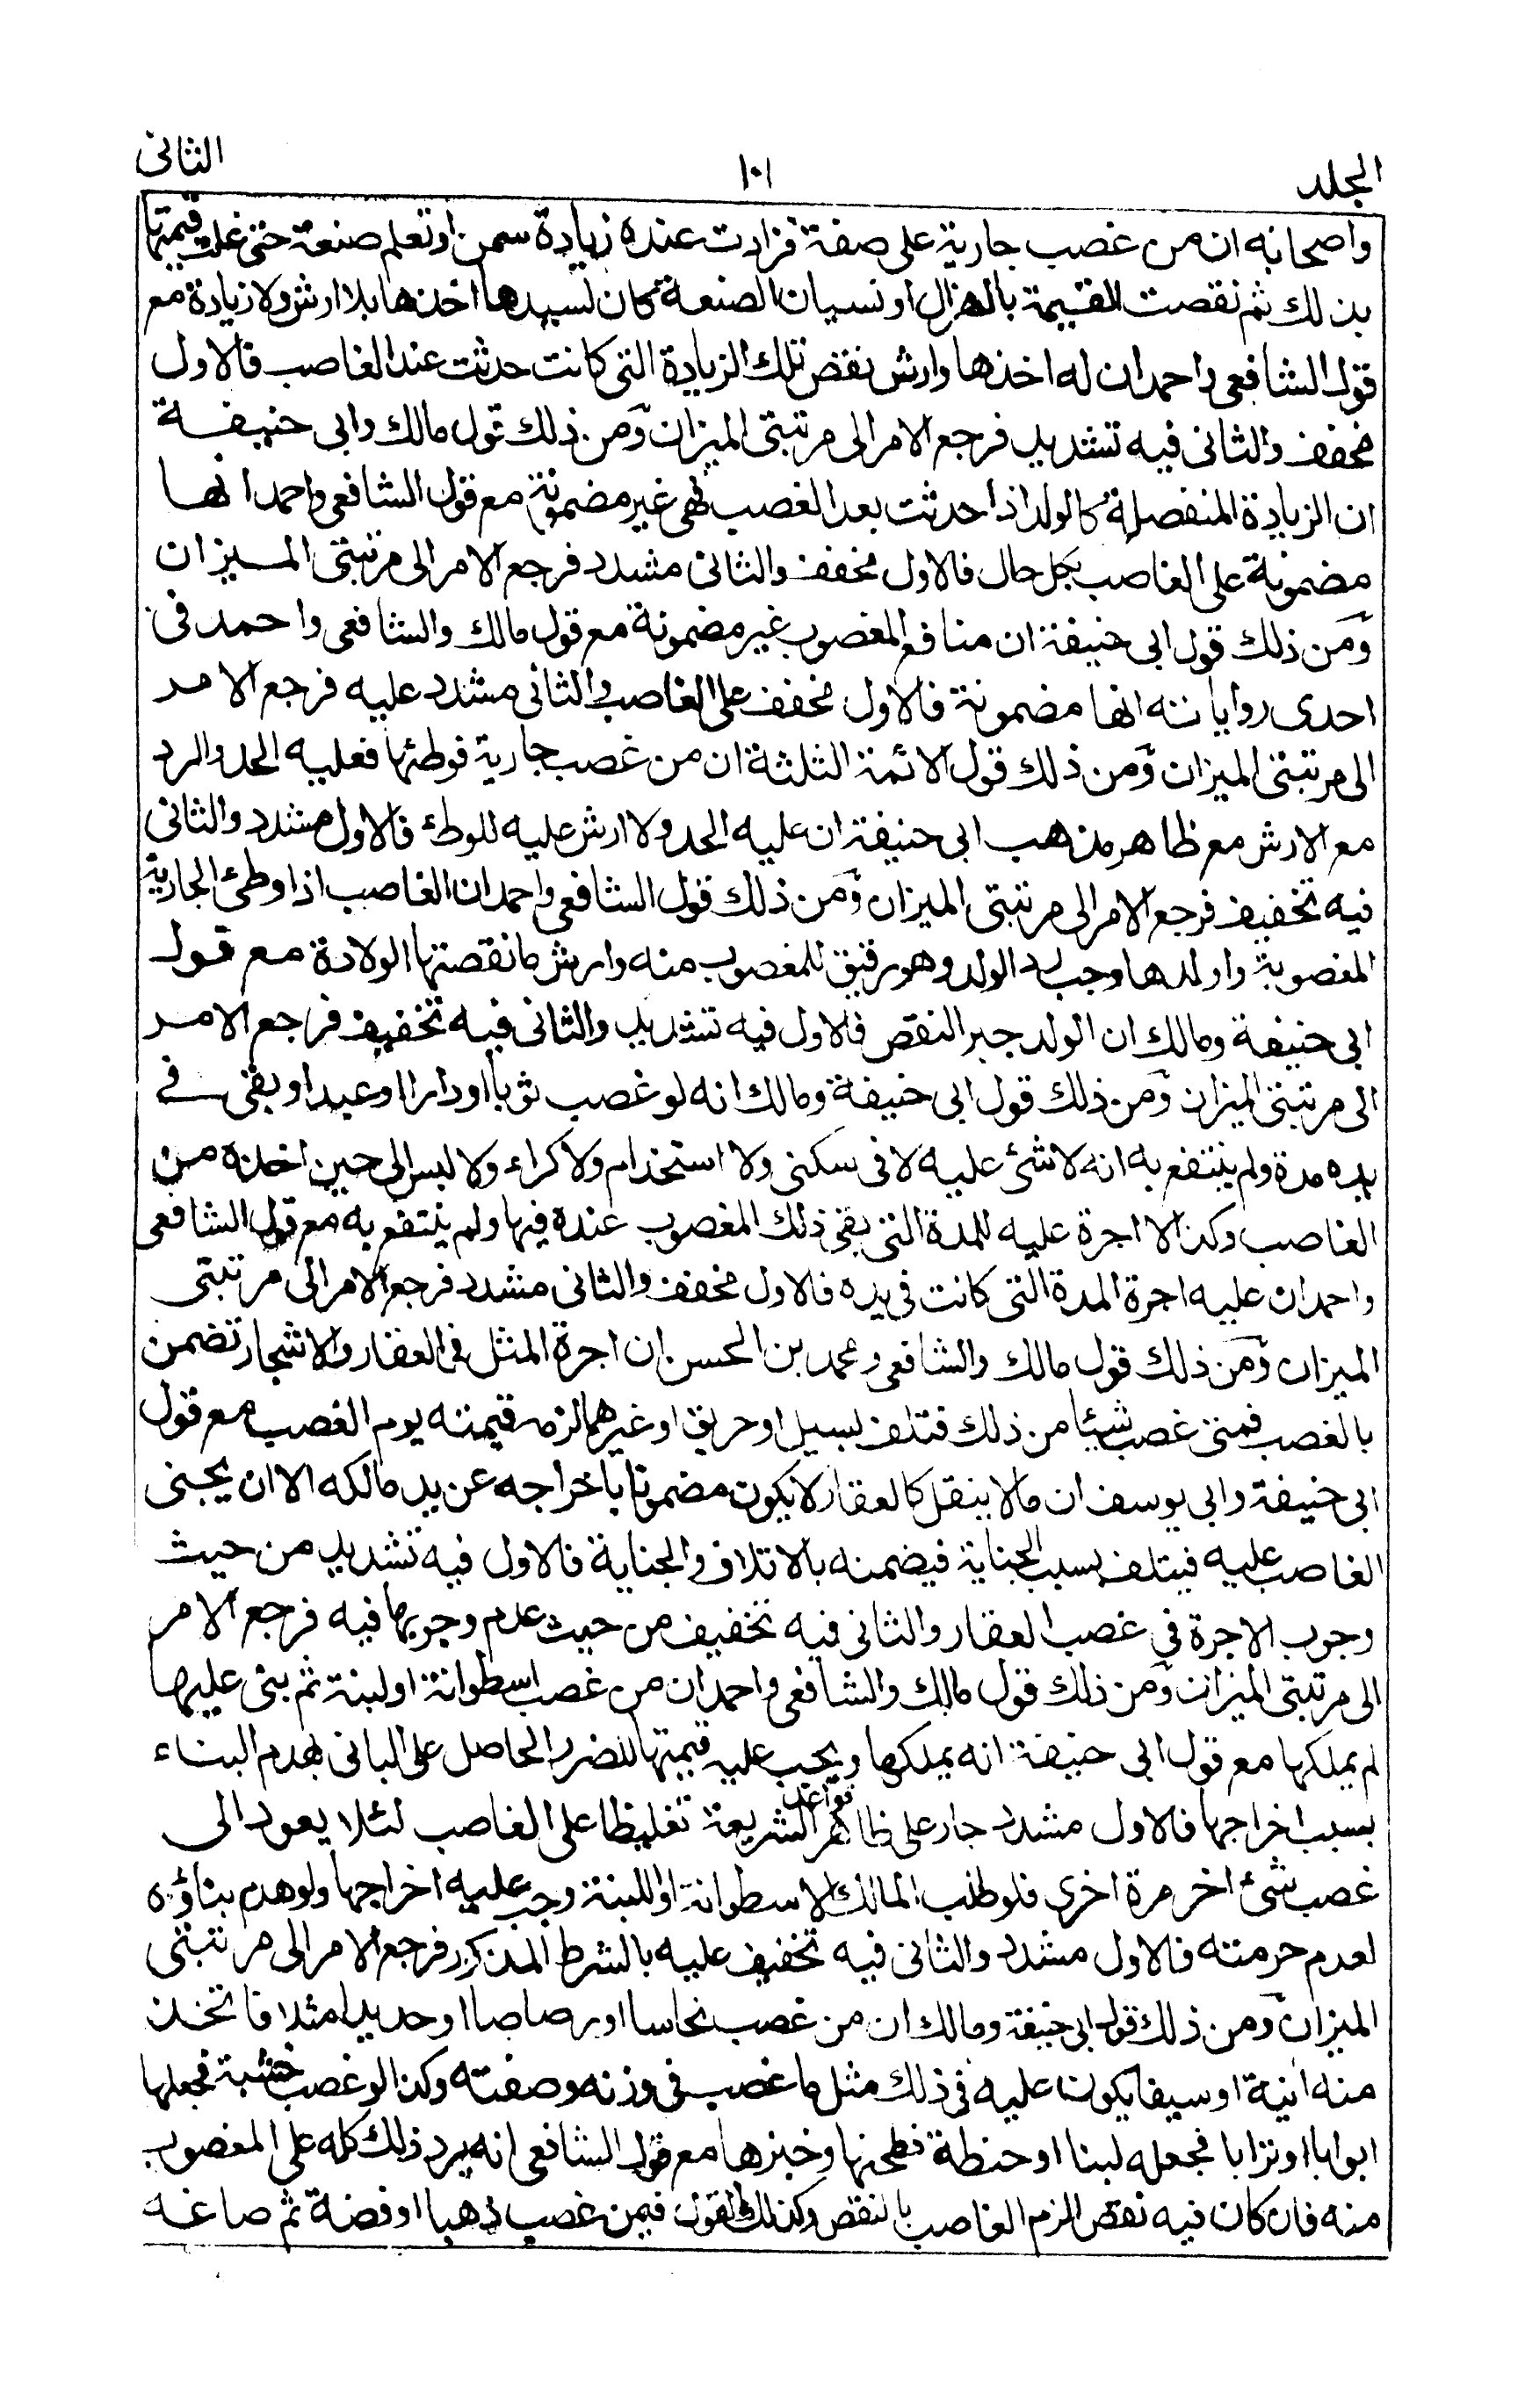 المجلد ١٠١ الثانى
واصحابه ان من غصب جارية على صفة فزادت عنده زيادة سمن او تعلم صنعة حتى غلت قيمتها
بذلك ثم نقصت القيمة بالهزال او نسيان الصنعة كان لسيدها اخذها بلا ارش ولا زيادة مع
قول الشافعى واحمد ان له اخذها وارش نقض تلك الزيادة التى كانت حدثت عند الغاصب فالاول
مخفف والثانى فيه تشديد فرجع الامر الى مرتبتى الميزان ومن ذلك قول مالك وابى حنيفة
ان الزيادة المنفصلة كالولد اذا حدثت بعد الغصب فهى غير مضمونة مع قول الشافعى واحمد انها
مضمونة على الغاصب بكل حال فالاول مخفف والثانى مشدد فرجع الامر الى مرتبتى الميزان
ومن ذلك قول ابى حنيفة ان منافع المغصوب غير مضمونة مع قول مالك والشافعى واحمد فى
احدى رواياته انها مضمونة فالاول مخفف على الغاصب والثانى مشدد عليه فرجع الامر
الى مرتبتى الميزان ومن ذلك قول الائمة الثلثة ان من غصب جارية فوطئها فعليه الحد والرد
مع الارش مع ظاهر مذهب ابى حنيفة ان عليه الحد ولا ارش عليه للوطئ فالاول مشدد والثانى
فيه تخفيف فرجع الامر الى مرتبتى الميزان ومن ذلك قول الشافعى واحمد ان الغاصب اذا وطئ الجارية
المغصوبة واولدها وجب رد الولد وهو رقيق للمغصوب منه وارش ما نقصتها الولادة مع قول
ابى حنيفة ومالك ان الولد جبر النقص فالاول فيه تشديد والثانى فيه تخفيف فرجع الامر
الى مرتبتى الميزان ومن ذلك قول ابى حنيفة ومالك انه لو غصب ثوبا او دارا او عبدا وبقى فے
يده مدة ولم ينتفع به انه لا شئ عليه لا فى سكنى ولا استخدام ولا كراء ولا لبس الى حين اخذه من
الغاصب وكذا لا اجرة عليه للمدة التى بقى ذلك المغصوب عنده فيها ولم ينتفع به مع قول الشافعى
واحمد ان عليه اجرة المدة التى كانت فى يده فالاول مخفف والثانى مشدد فرجع الامر الى مرتبتى
الميزان ومن ذلك قول مالك والشافعى ومحمد بن الحسن ان اجرة المثل فى العقار والاشجار تضمن
بالغصب فمتى غصب شيئا من ذلك فتلف بسيل او حريق او غيرهما لزمه قيمته يوم الغصب مع قول
ابى حنيفة وابى يوسف ان ما لا ينقل كالعقار لا يكون مضمونا باخراجه عن يد مالكه الا ان يجنى
الغاصب عليه فيتلف بسبب الجناية فيضمنه بالاتلاف والجناية فالاول فيه تشديد من حيث
وجوب الاجرة فى غصب العقار والثانى فيه تخفيف من حيث عدم وجوبها فيه فرجع الامر
الى مرتبتى الميزان ومن ذلك قول مالك والشافعى واحمد ان من غصب اسطوانة او لبنة ثم بنى عليها
لم يملكها مع قول ابى حنيفة انه يملكها ويجب عليه قيمتها للضرر الحاصل على البانى بهدم البناء
بسبب اخراجها فالاول مشدد جار على ظاهر قواعد الشريعة تغليظا على الغاصب لئلا يعود الى
غصب شئ اخر مرة اخرى فلو طلب المالك الاسطوانة او اللبنة وجب عليه اخراجها ولو هدم بناؤه
لعدم حرمته فالاول مشدد والثانى فيه تخفيف عليه بالشرط المذكور فرجع الامر الى مرتبتى
الميزان ومن ذلك قول ابى حنيفة ومالك ان من غصب نحاسا او رصاصا او حديدا مثلا فاتخذ
منه انية او سيفا يكون عليه فى ذلك مثل ما غصب فى وزنه وصفته وكذا لو غصب خشبة فجعلها
ابوابا او ترابا فجعله لبنا او حنطة فطحنها وخبزها مع قول الشافعى انه يرد ذلك كله على المغصوب
منه فان كان فيه نقص الزم الغاصب بالنقص وكذلك القول فيمن غصب ذهبا او فضة ثم صاغه